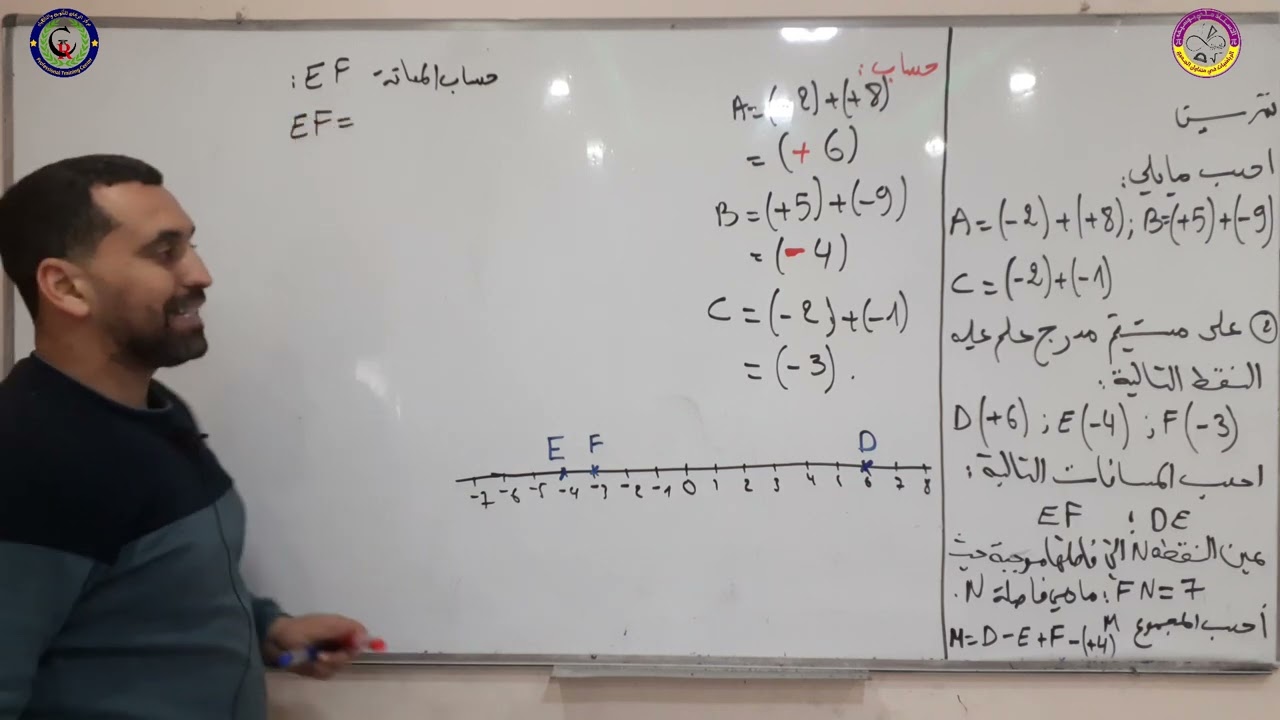 تمرين
احسب مايلي:
A=(-2)+(+8); B=(+5)+(-9)
C=(-2)+(-1)
② على مستقيم مدرج علم عليه
النقط التالية:
D(+6) ; E(-4) ; F(-3)
احسب المسافات التالية:
EF ; DE
عين النقطة N التي فاصلتها موجبة حيث
FN=7; ما هي فاصلة N.
أحسب المجموع M
M=D-E+F-(+4)
حساب:
A=(-2)+(+8)
=(+6)
B=(+5)+(-9)
=(-4)
C=(-2)+(-1)
=(-3).
حساب المسافة EF:
EF=
E F D
-7 -6 -5 -4 -3 -2 -1 0 1 2 3 4 5 6 7 8
Professional Training Center